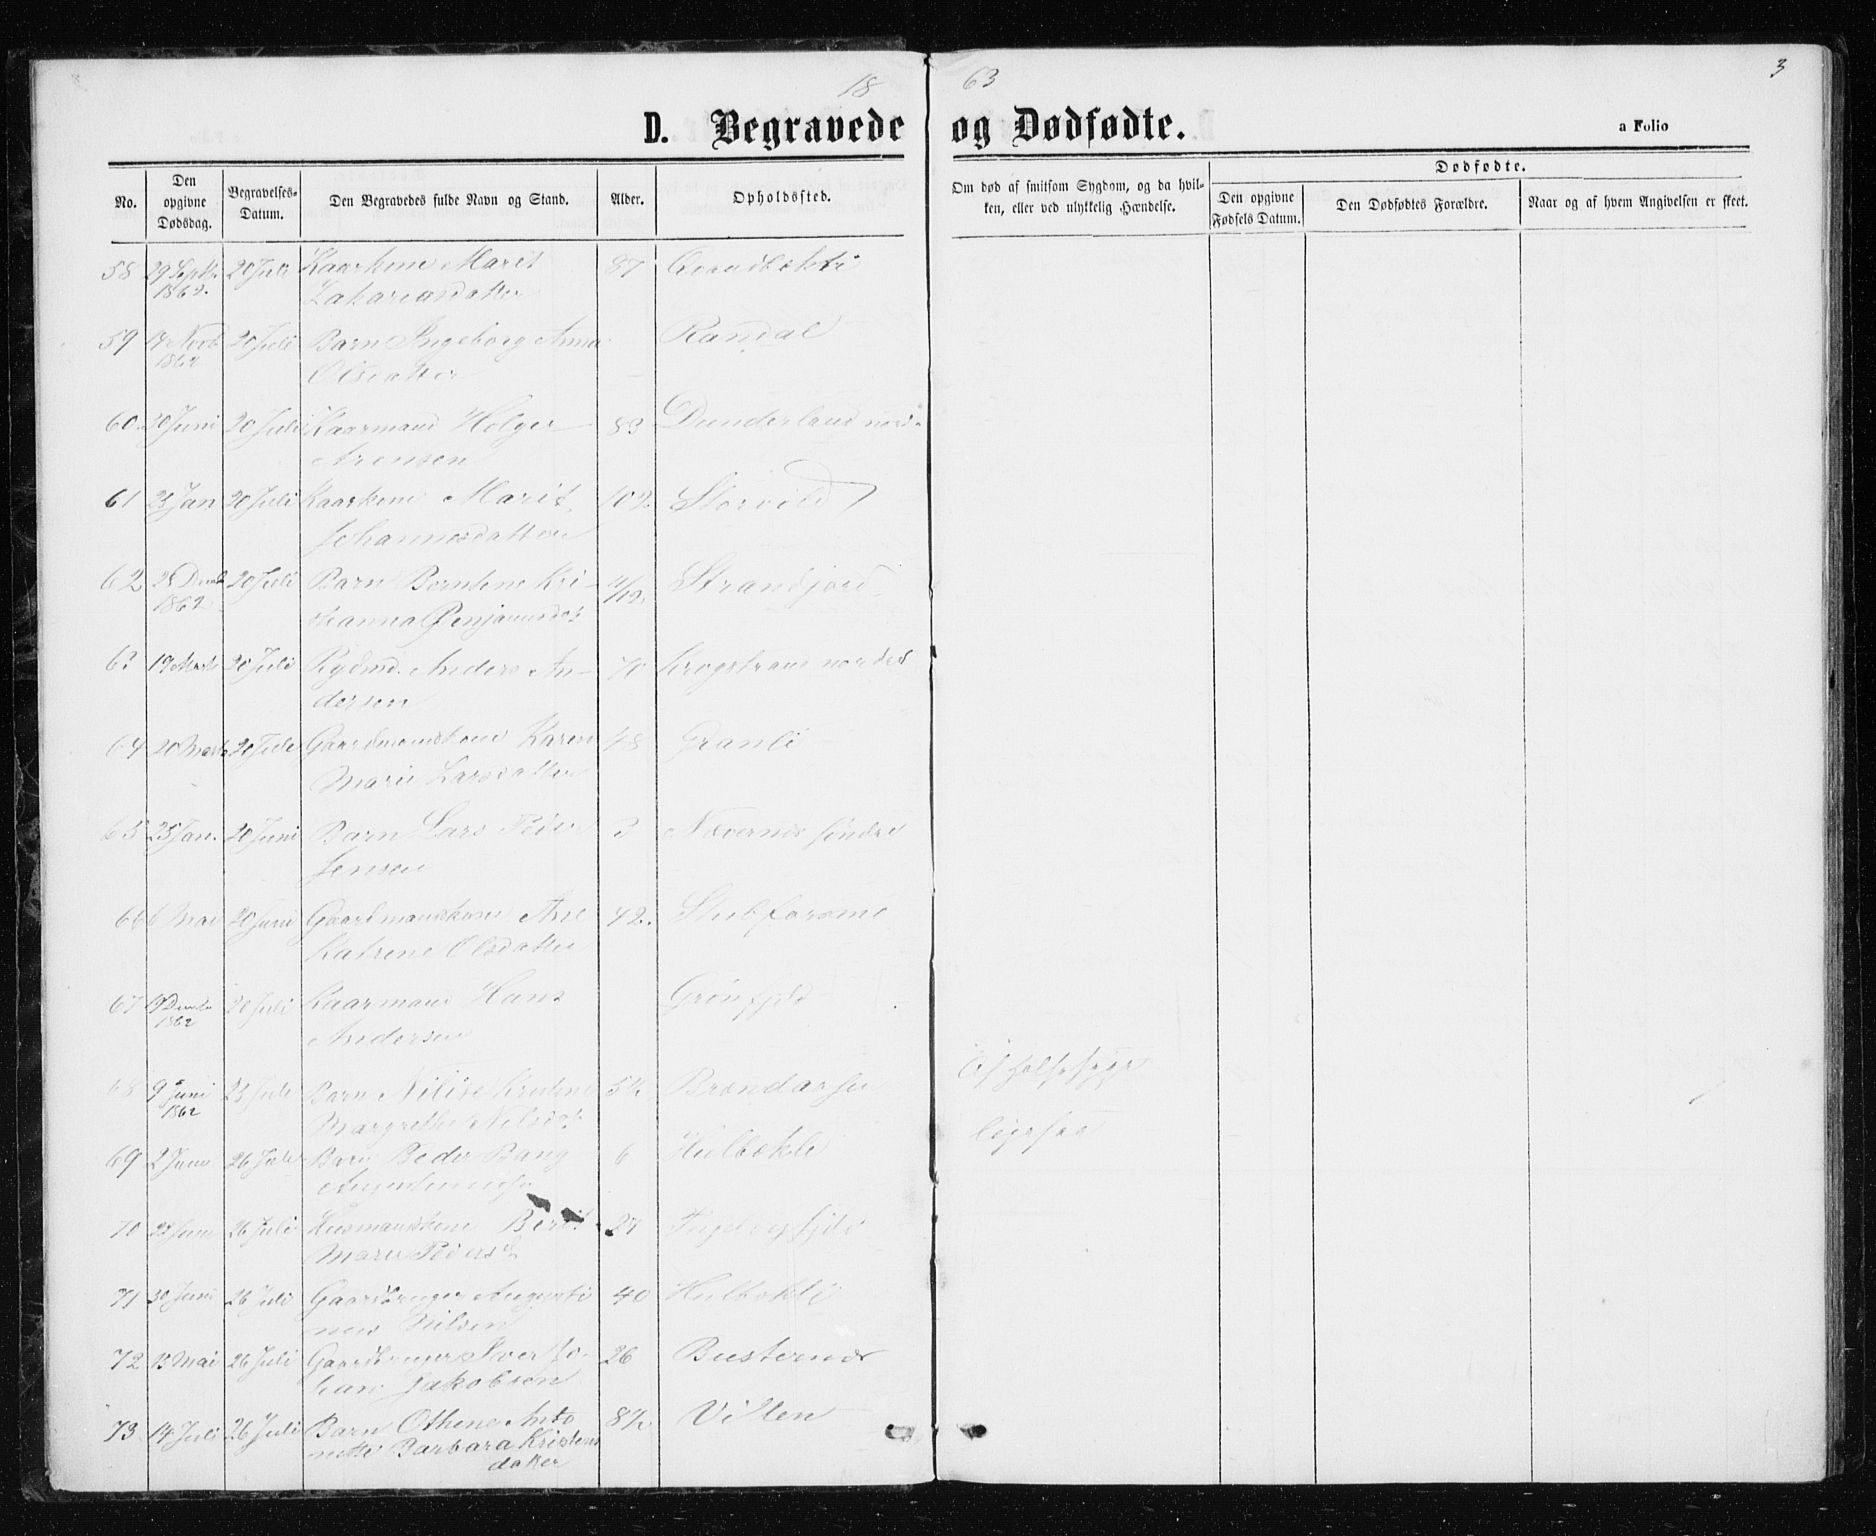 18 63 3
D. Begravede og Dødfødte.
a Folio
No.
Den opgivne Dødsdag.
Begravelses-Datum.
Den Begravedes fulde Navn og Stand.
Alder.
Opholdssted.
Om død af smitsom Sygdom, og da hvil-
ken, eller ved ulykkelig Hændelse.
Dødfødte.
Den opgivne Fødsels Datum.
Den Dødfødtes Forældre.
Naar og af hvem Angivelsen er skeet.
58 29 Septb. 20 Juli Kaarkene Marit 87
1862. Zakariasdatter
59 14 Novb 20 Juli Barn Ingeborg Anna Randal
1862 Olsdatter
60 30 Juni 20 Juli Kaarmand Holger 83 Dunderland nord-
Arensen
61 25 Jan 20 Juli Kaarkene Marit 102 Storvold
Johannesdatter
62 28 Decb 20 Juli Barn Berntine Kri- 4/12 Strandjord
1862 stianna Benjaminsdat
63 19 Marts 20 Juli Anders An- 70 Krogstrand nordre
dersen
64 20 Marts 20 Juli Gaardmandskone Karen 48 Granli
Marie Larsdatter
65 25 Jan. 20 Juni Barn Lars Peder 3 Nævernes søndre
Jensen
66 6 Mai 20 Juni Gaardmandskone Ane 42. Stubforsmo
Katrine Olsdatter
67 19 Decb 20 Juli Kaarmand Hans Grønfjeld
1862 Andersen
68 9 Juni 23 Juli Barn 5½ Af Halsesyge
1862 Margrethe Nilsdat
69 2 Juni 26 Juli Barn Peder Bang 6 Hulbækli ligesaa
70 Juni 26 Juli Husmandskone Berit 27
Marie Pedersd
71 30 Juni 26 Juli Gaardbruger Augusti 40 Hulbækli
nus Nilsen
72 13 Mai 26 Juli Gaardbruger Iver Jo- 26 Busternes
han Jakobsen
73 14 Juli 26 Juli Barn Othene Anto 8½ Villen
nette Barbara Kristens
datter